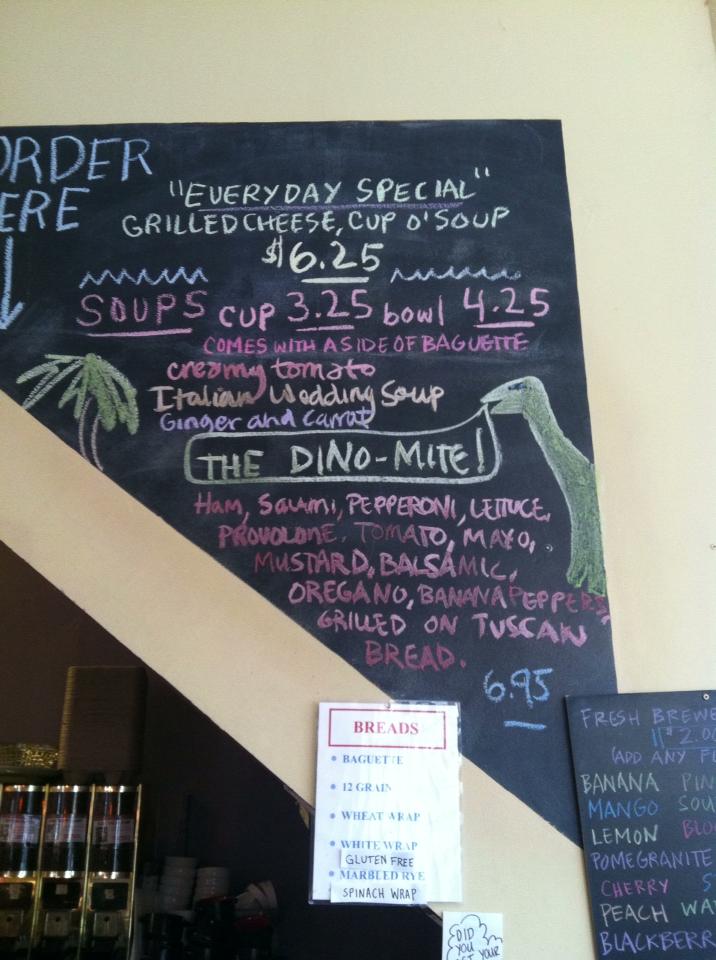 ORDER
ERE
"EVERYDAY SPECIAL"
GRILLED CHEESE, CUP O' SOUP
$6.25
SOUPS CUP 3.25 bowl 4.25
COMES WITH A SIDE OF BAGUETTE
creamy tomato
Italian Wedding Soup
Ginger and Carrot
THE DINO-MITE!
Ham, Salami, PEPPERONI, LETTUCE,
PROVOLONE, TOMATO, MAYO,
MUSTARD, BALSAMIC,
OREGANO, BANANA PEPPERS,
GRILLED ON TUSCAN
BREAD.
6.95
BREADS
• BAGUETTE
• 12 GRAIN
• WHEAT WRAP
• WHITE WRAP
GLUTEN FREE
• MARBLED RYE
SPINACH WRAP
DID
YOU
GET YOUR
FRESH BREWE
$2.00
(ADD ANY F
BANANA PIN
MANGO SOU
LEMON BLU
POMEGRINITE
CHERRY S
PEACH WA
BLACKBERR